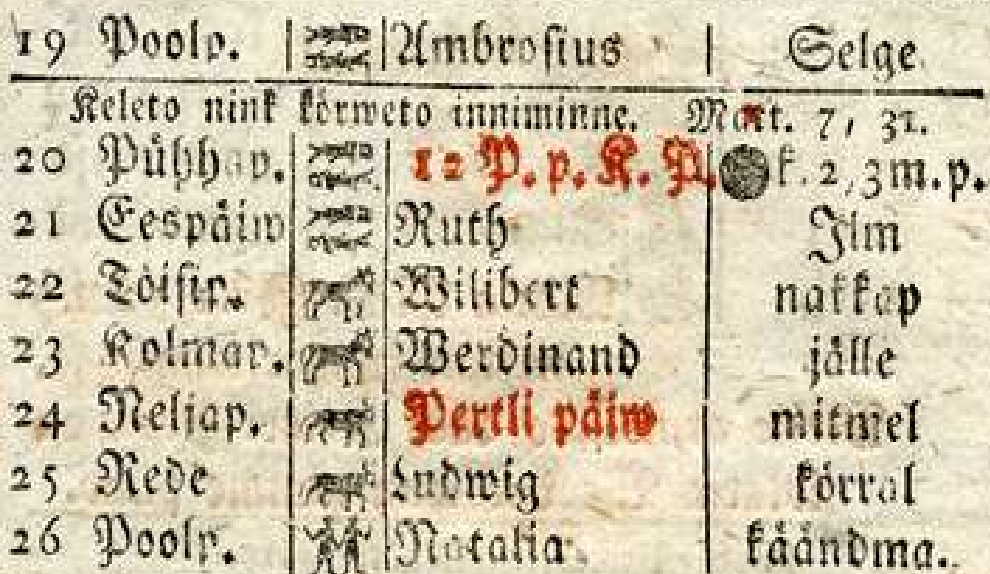 19 Poolp. Ambrosius Selge.
Keleto nink körweto inniminne. Mart. 7, 31.
20 Pühhap. 12 P. p. K. P. k. 2, 3 m. p.
21 Eespäiw Ruth Ilm
22 Töisip. Wilibert nakkap
23 Kolmap. Werdinand jälle
24 Neljap. Pertli päiw mitmel
25 Rede Ludwig körral
26 Poolp. Natalia. käändma.